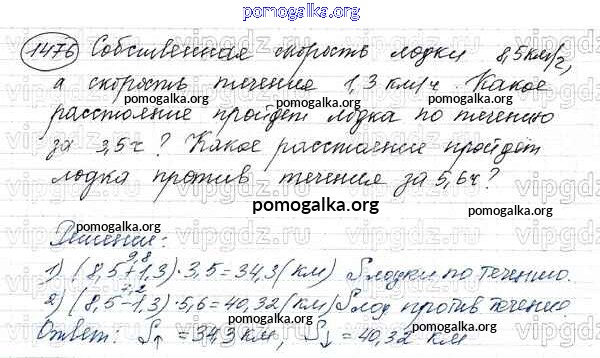 pomogalka.org
1476 Собственная скорость лодки 8,5км/ч,
а скорость течения 1,3 км/ч. Какое
pomogalka.org
расстояние пройдет лодка по течению
за 3,5ч? Какое расстояние пройдет
лодка против течения за 5,6ч?
pomogalka.org
Решение:
9,8
1) (8,5+1,3)·3,5=34,3(км) S лодки по течению.
7,2
2) (8,5-1,3)·5,6=40,32(км) S лод против течению.
Ответ: S↑ =34,3 км, S↓ =40,32 км
pomogalka.org